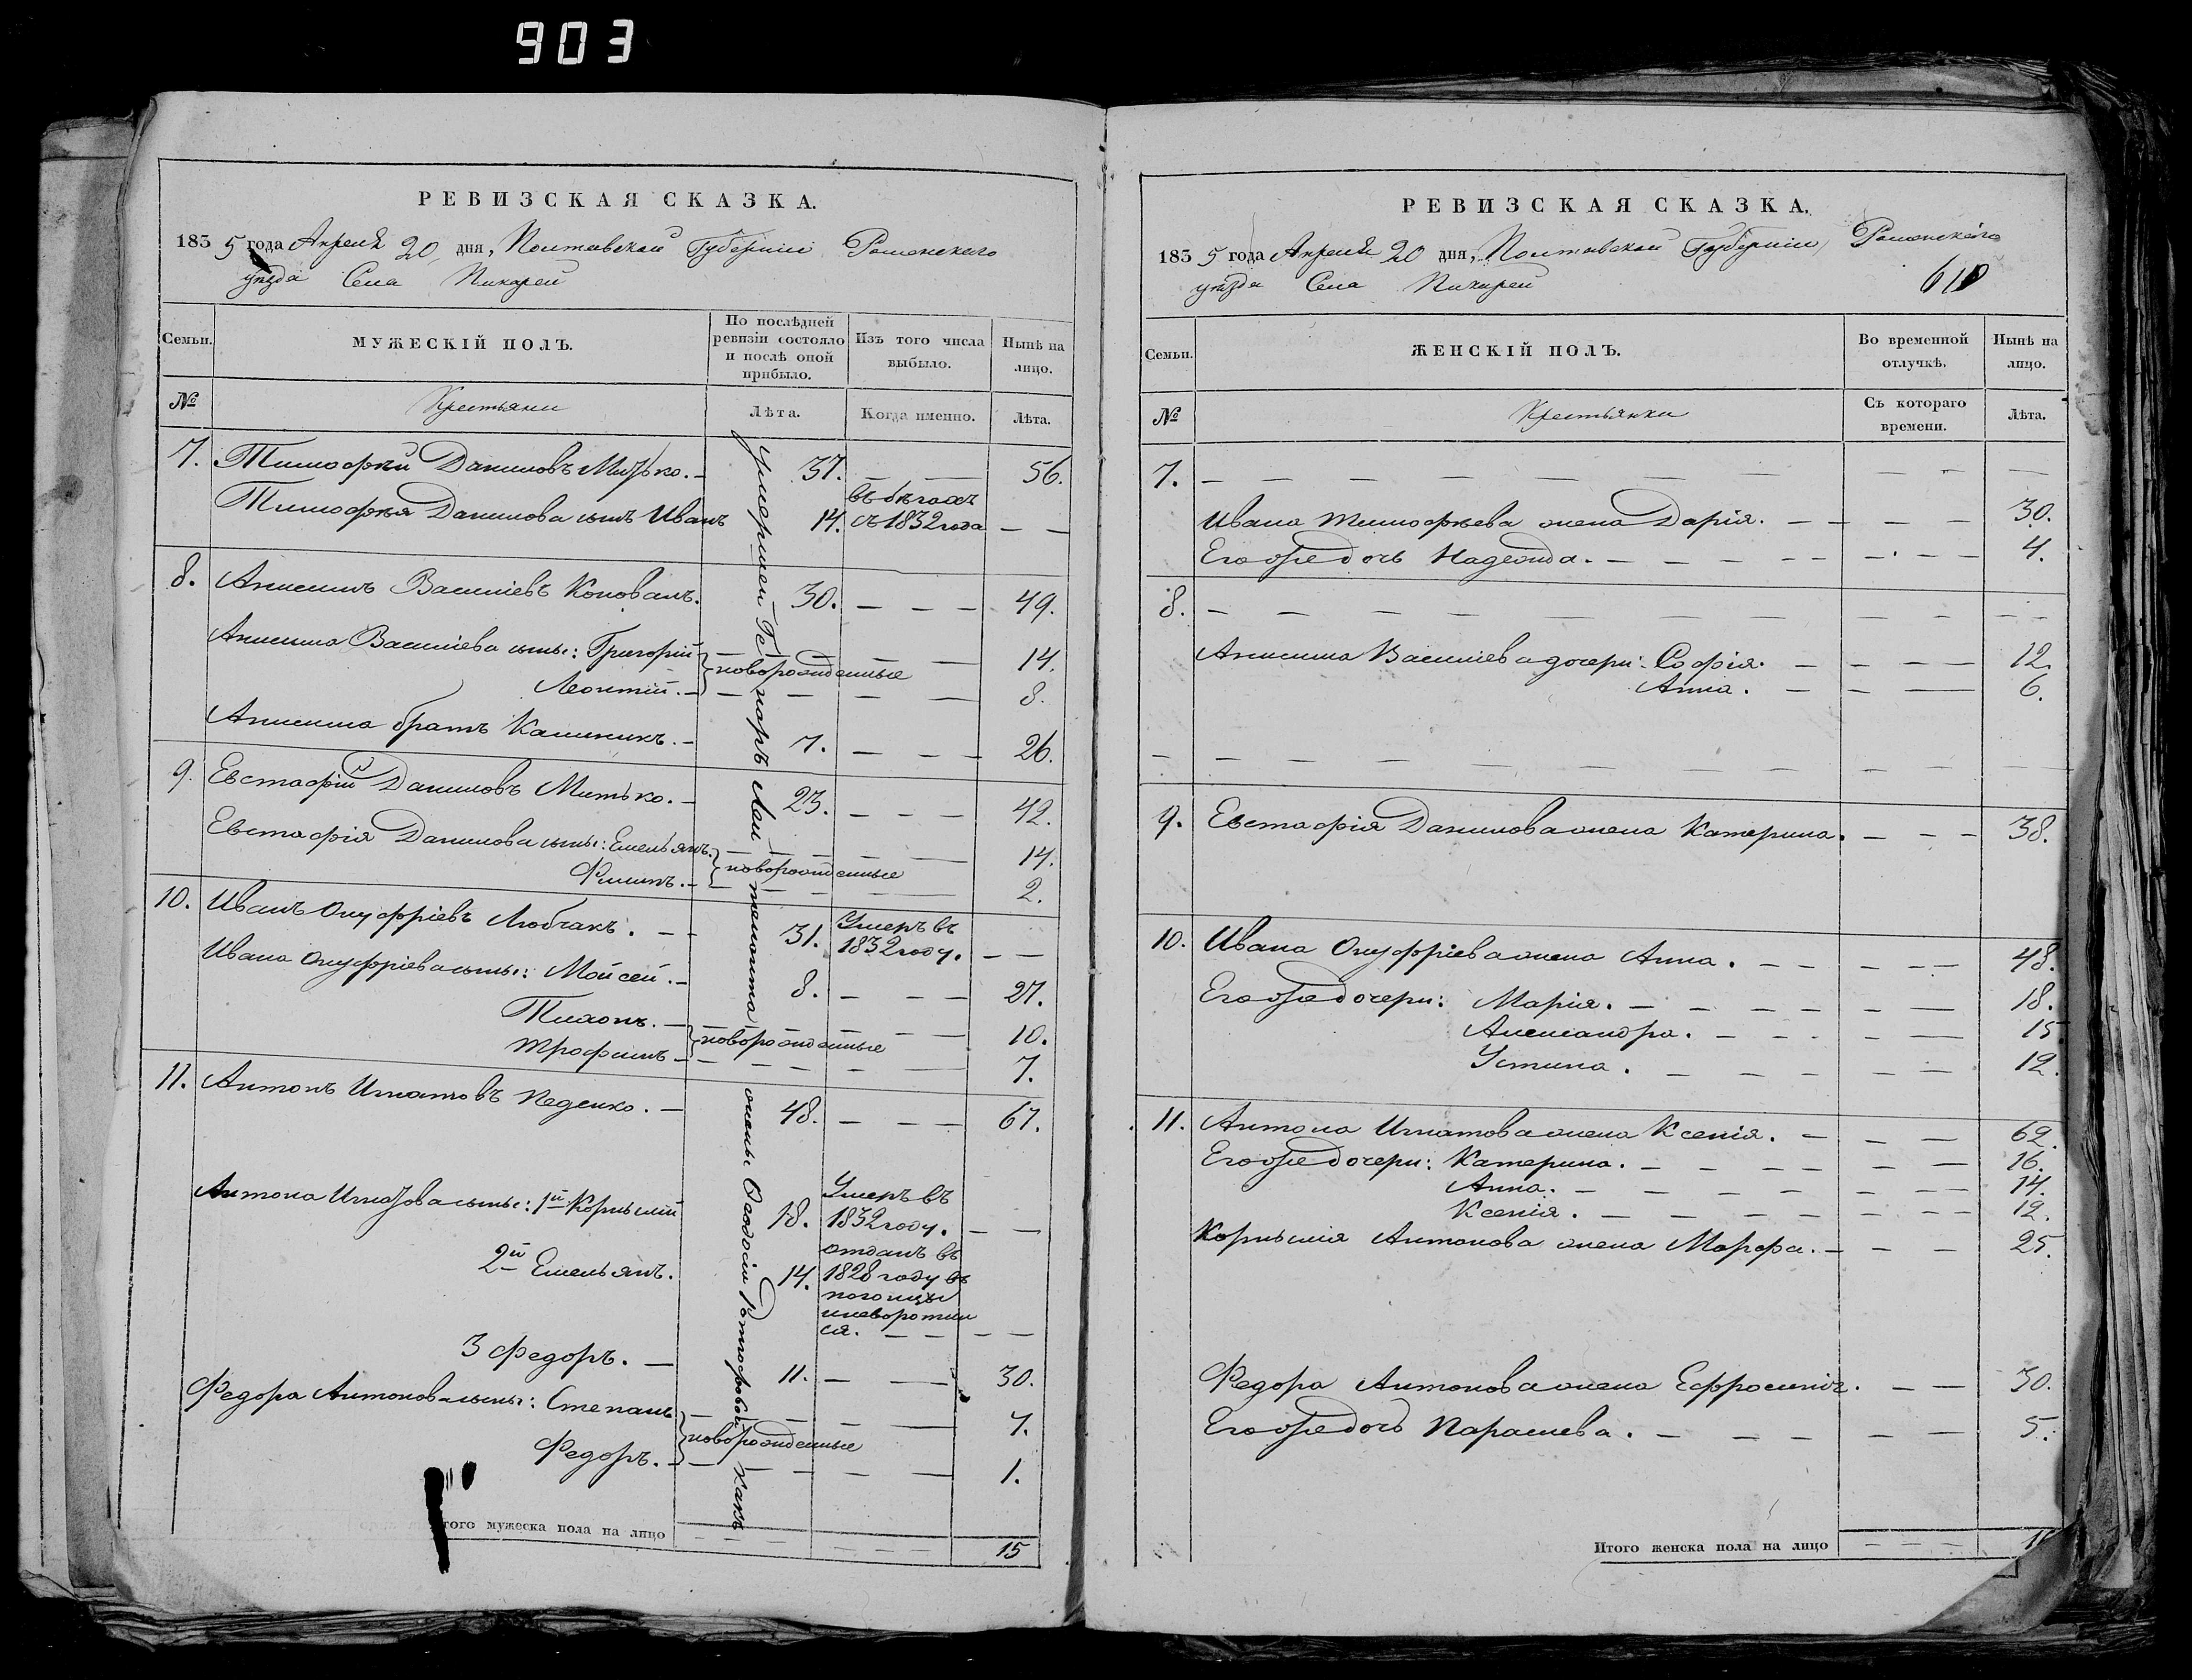 903
РЕВИЗСКАЯ СКАЗКА.
1835 года Апреля 20 дня, Полтавской Губерніи Роменского
уѣзда Села Пикарей
Семьи. МУЖЕСКІЙ ПОЛЪ. По послѣдней ревизіи состояло и послѣ оной прибыло. Изъ того числа выбыло. Нынѣ на лицо.
№ Крестьяни Лѣта. Когда именно. Лѣта.
7. Тимофей Даниловъ Митько. 37. — — 56.
Тимофея Данилова сынъ Иванъ 14. въ бѣгахъ съ 1832 года — —
8. Анисимъ Василіевъ Коновалъ. 30. — — — 49.
Анисима Василіева сыны: Григорій новорожденные 14.
Леонтій. 8.
Анисима братъ Калиникъ. 7. — — — 26.
9. Евстафій Даниловъ Митько. 23. — — — 42.
Евстафія Данилова сыны: Емельянъ. новорожденные 14.
Филипъ. 2.
10. Иванъ Онуфріевъ Любчакъ. 31. Умеръ въ 1832 году. — —
Ивана Онуфріева сыны: Мойсей. 8. — — — 27.
Тихонъ. новорожденные 10.
Трофимъ 7.
11. Антонъ Игнатовъ Педенко. 48. — — — 67.
Антона Игнатова сыны: 1й Корнилій 18. Умеръ въ 1832 году. — —
2й Емельянъ. 14. отданъ въ 1828 году въ погонцы и неворотился. — — — —
3 Федоръ. 11. — — 30.
Федора Антонова сыны: Степанъ новорожденные 7.
Федоръ. 1.
Итого мужеска пола на лицо — — — — — 15
умершей Ге наръ Лей тенанта жены Феодосіи какъ
РЕВИЗСКАЯ СКАЗКА.
1835 года Апреля 20 дня, Полтавской Губерніи, Роменского
уѣзда Села Пикарей
610
Семьи. ЖЕНСКІЙ ПОЛЪ. Во временной отлучкѣ. Нынѣ на лицо.
№ Крестьянки Съ котораго времени. Лѣта.
7. — — — — — —
Ивана Тимофеева жена Дарія. — — — — 30.
Его же дочь Надежда. — — — — 4.
8. — — — — — —
Анисима Василіева дочери: Софія. — — — — 12.
Анна. — — — 6.
— — — — — —
9. Евстафія Данилова жена Катерина. — — — 38.
10. Ивана Онуфріева жена Анна. — — — — 48.
Его же дочери: Марія. — — — — 18.
Александра. — — — 15.
Устина. — — — — 12.
11. Антона Игнатова жена Ксенія. — — — 62.
Его же дочери: Катерина. — — — — 16.
Анна. — — — — 14.
Ксенія. — — — — 12.
Корнилія Антонова жена Марфа. — — — 25.
Федора Антонова жена Ефросинія. — — 30.
Его же дочь Парасцева. — — — — 5.
Итого женска пола на лицо — — —